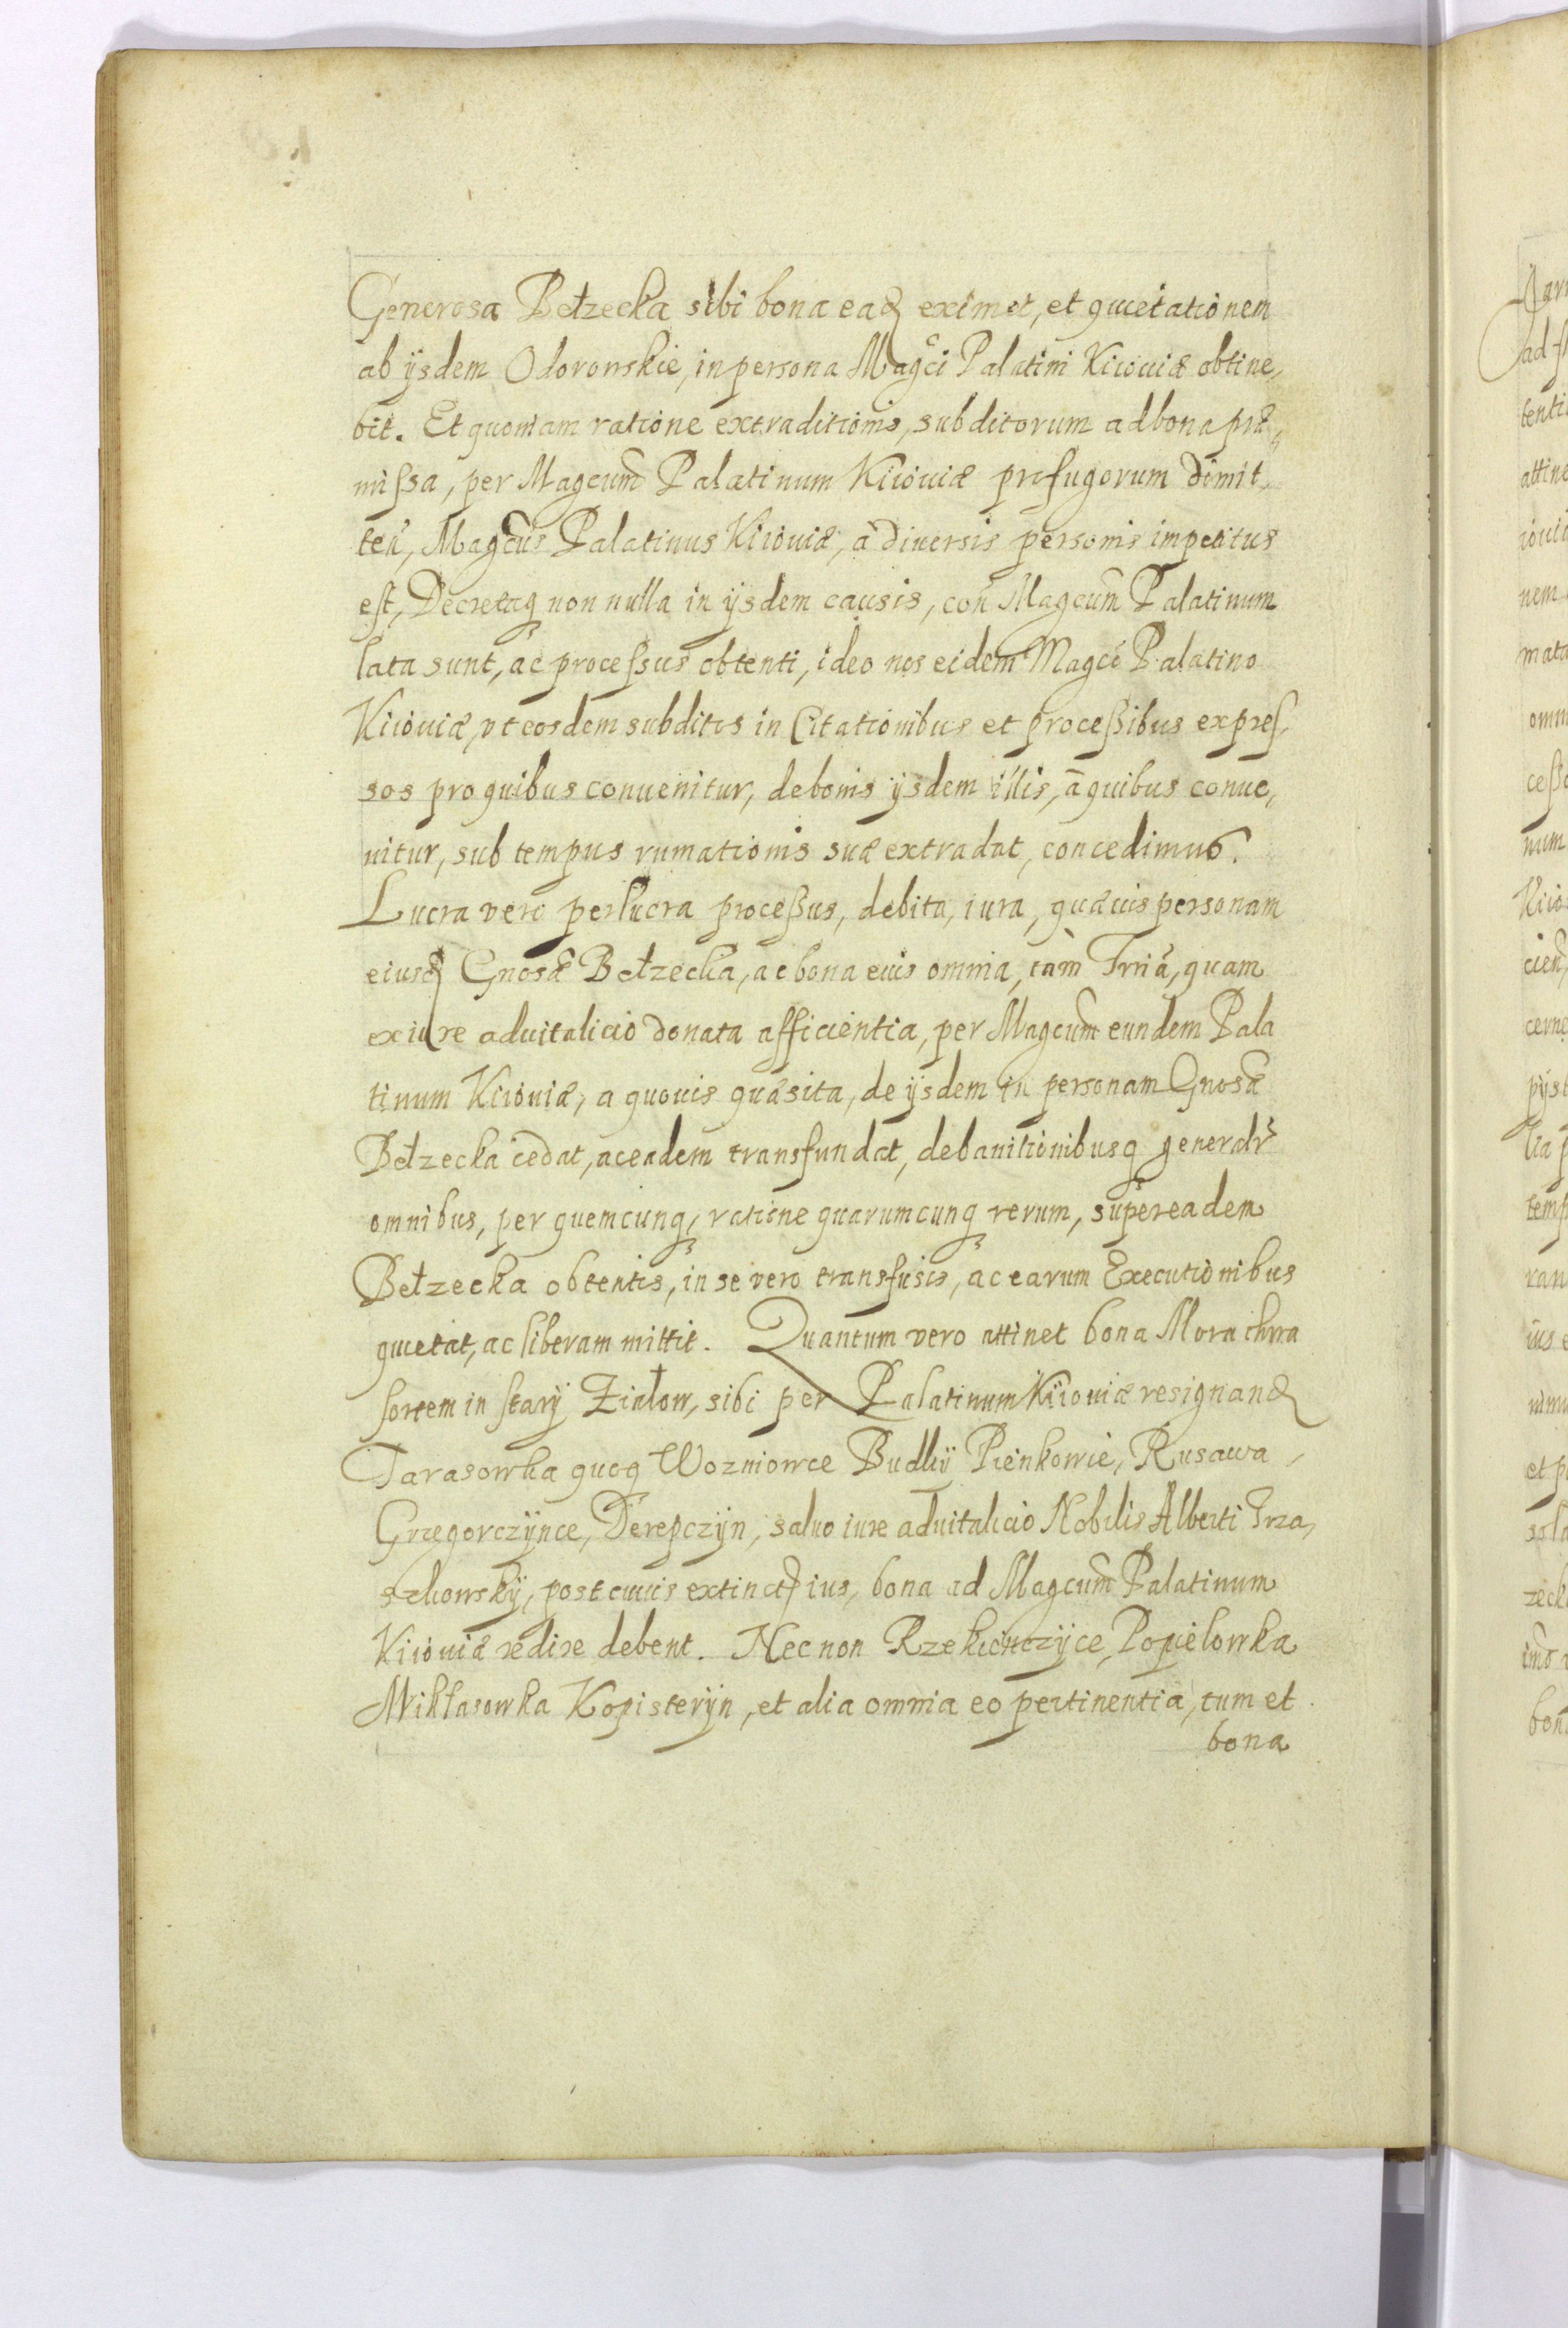 Generosa Bełzecka sibi bona eaq eximet, et quietationem
ab ijsdem Odorowskie, in persona Magci Palatini Kiiouiæ obtine,
bit. Et quoniam ratione extraditionis, subditorum ad bona præ,
missa, per Magcum Palatinum Kiiouiæ profugorum dimit,
ten, Magcus Palatinus Kiiouiæ, a diuersis personis impetitus
est, Decretaq non nulla in ijsdem causis, con Magcum Palatinum
lata sunt, ac processus obtenti, ideo nos eidem Magco Palatino
Kiiouiæ, vt eosdem subditos in Citationibus et processibus expres,
sos pro quibus conuenitur, de bonis ijsdem illis, a quibus conue,
nitur, sub tempus rumationis suæ extradat, concedimus.
Lucra vero perlucra processus, debita, iura, quæuis personam
eiusd Gnosæ Bełzecka, ac bona euis omnia, tam Trria, quam
ex iure aduitalicio donata afficientia, per Magcum eundem Pala
tinum Kiiouiæ, a quouis quæsita, de ijsdem in personam Gnosæ
Bełzecka cedat, ac eadem transfundat, de banitionibusq generalr
omnibus, per quemcunq, ratione quarumcunq rerum, super eadem
Bełzecka obtentis, in se vero transfusis, ac earum Executionibus
quietat, ac liberam mittit. Quantum vero attinet bona Morachwa
sortem in starij Ziałow, sibi per Palatinum Kiiouiæ resignand
Tarasowka quoq Wozniowce Budkij Pienkowie, Rusawa,
Grzegorczijnce, Derepczijn, saluo iure aduitalicio Nobilis Alberti Trza,
szkowskij, post cuuis extinct ius, bona ad Magcum Palatinum
Kiiouiæ redire debent. Nec non Rzekienczijce, Popielowka
Mikłasowka Kopisterijn, et alia omnia eo pertinentia, tum et
bona